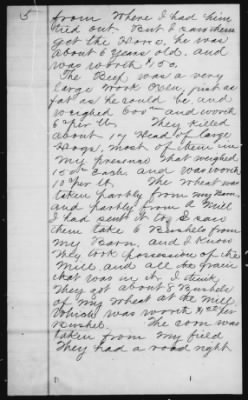 5
from where I had him
tied out. But I saw them
get the Horse, he was
about 6 years old. and
was worth $150.
The Beef was a very
large work Oxen, just as
fat as he could be. and
weighed 600# and worth
6¢ per lb. They killed
about 17 Head of large
Hogs, most of them in
my presence that weighed
150# each and was worth
10¢ per lb. The wheat was
taken partly from my Barn
and partly from a Mill
I had sent it to I saw
them take 6 Bushels from
my Barn, and I know
they took possession of the
Mill and all the grain
that was in it, I think
They got about 8 Bushels
of my wheat at the Mill
Which was worth per
Bushel. The corn was
taken from my field
They had a road right